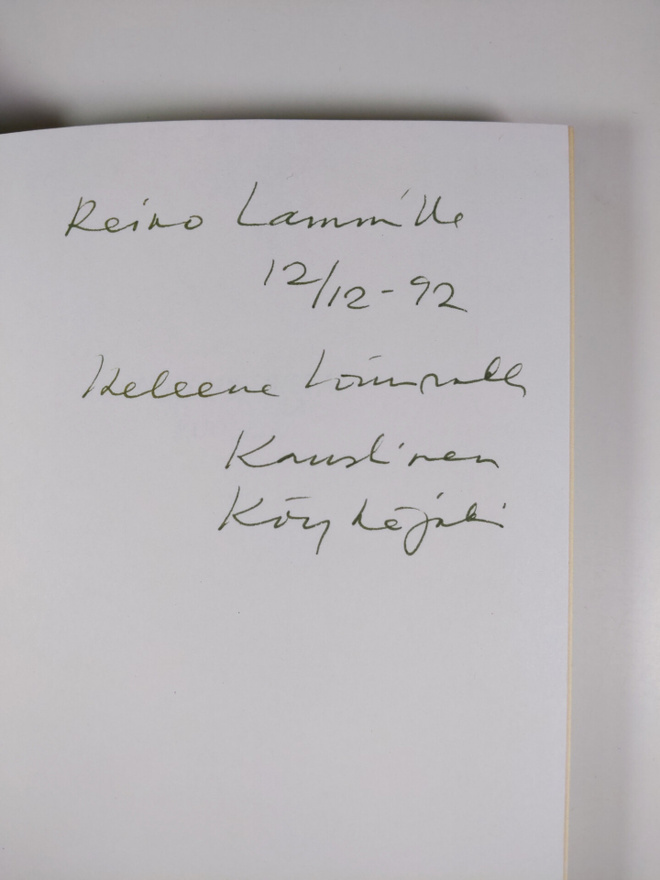 Reino Lammille
12/12-92
Heleena
Kaustinen
Köyhäjoki